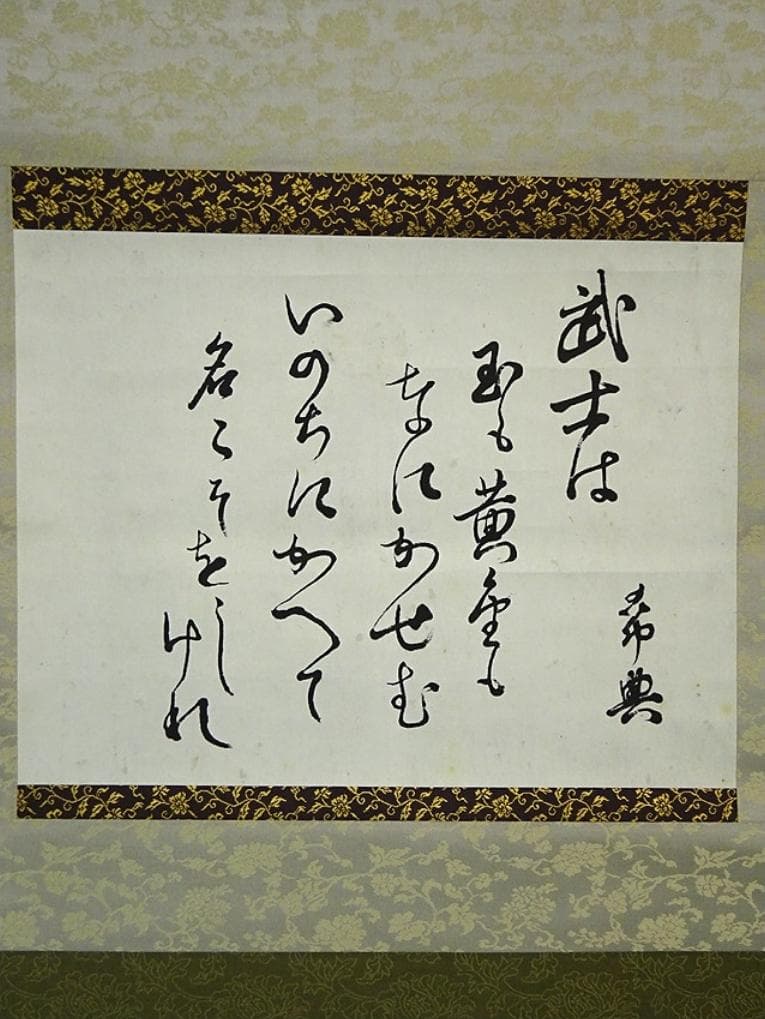 希典
武士は
玉も黄金も
なにかせむ
いのちにかへて
名こそをしけれ